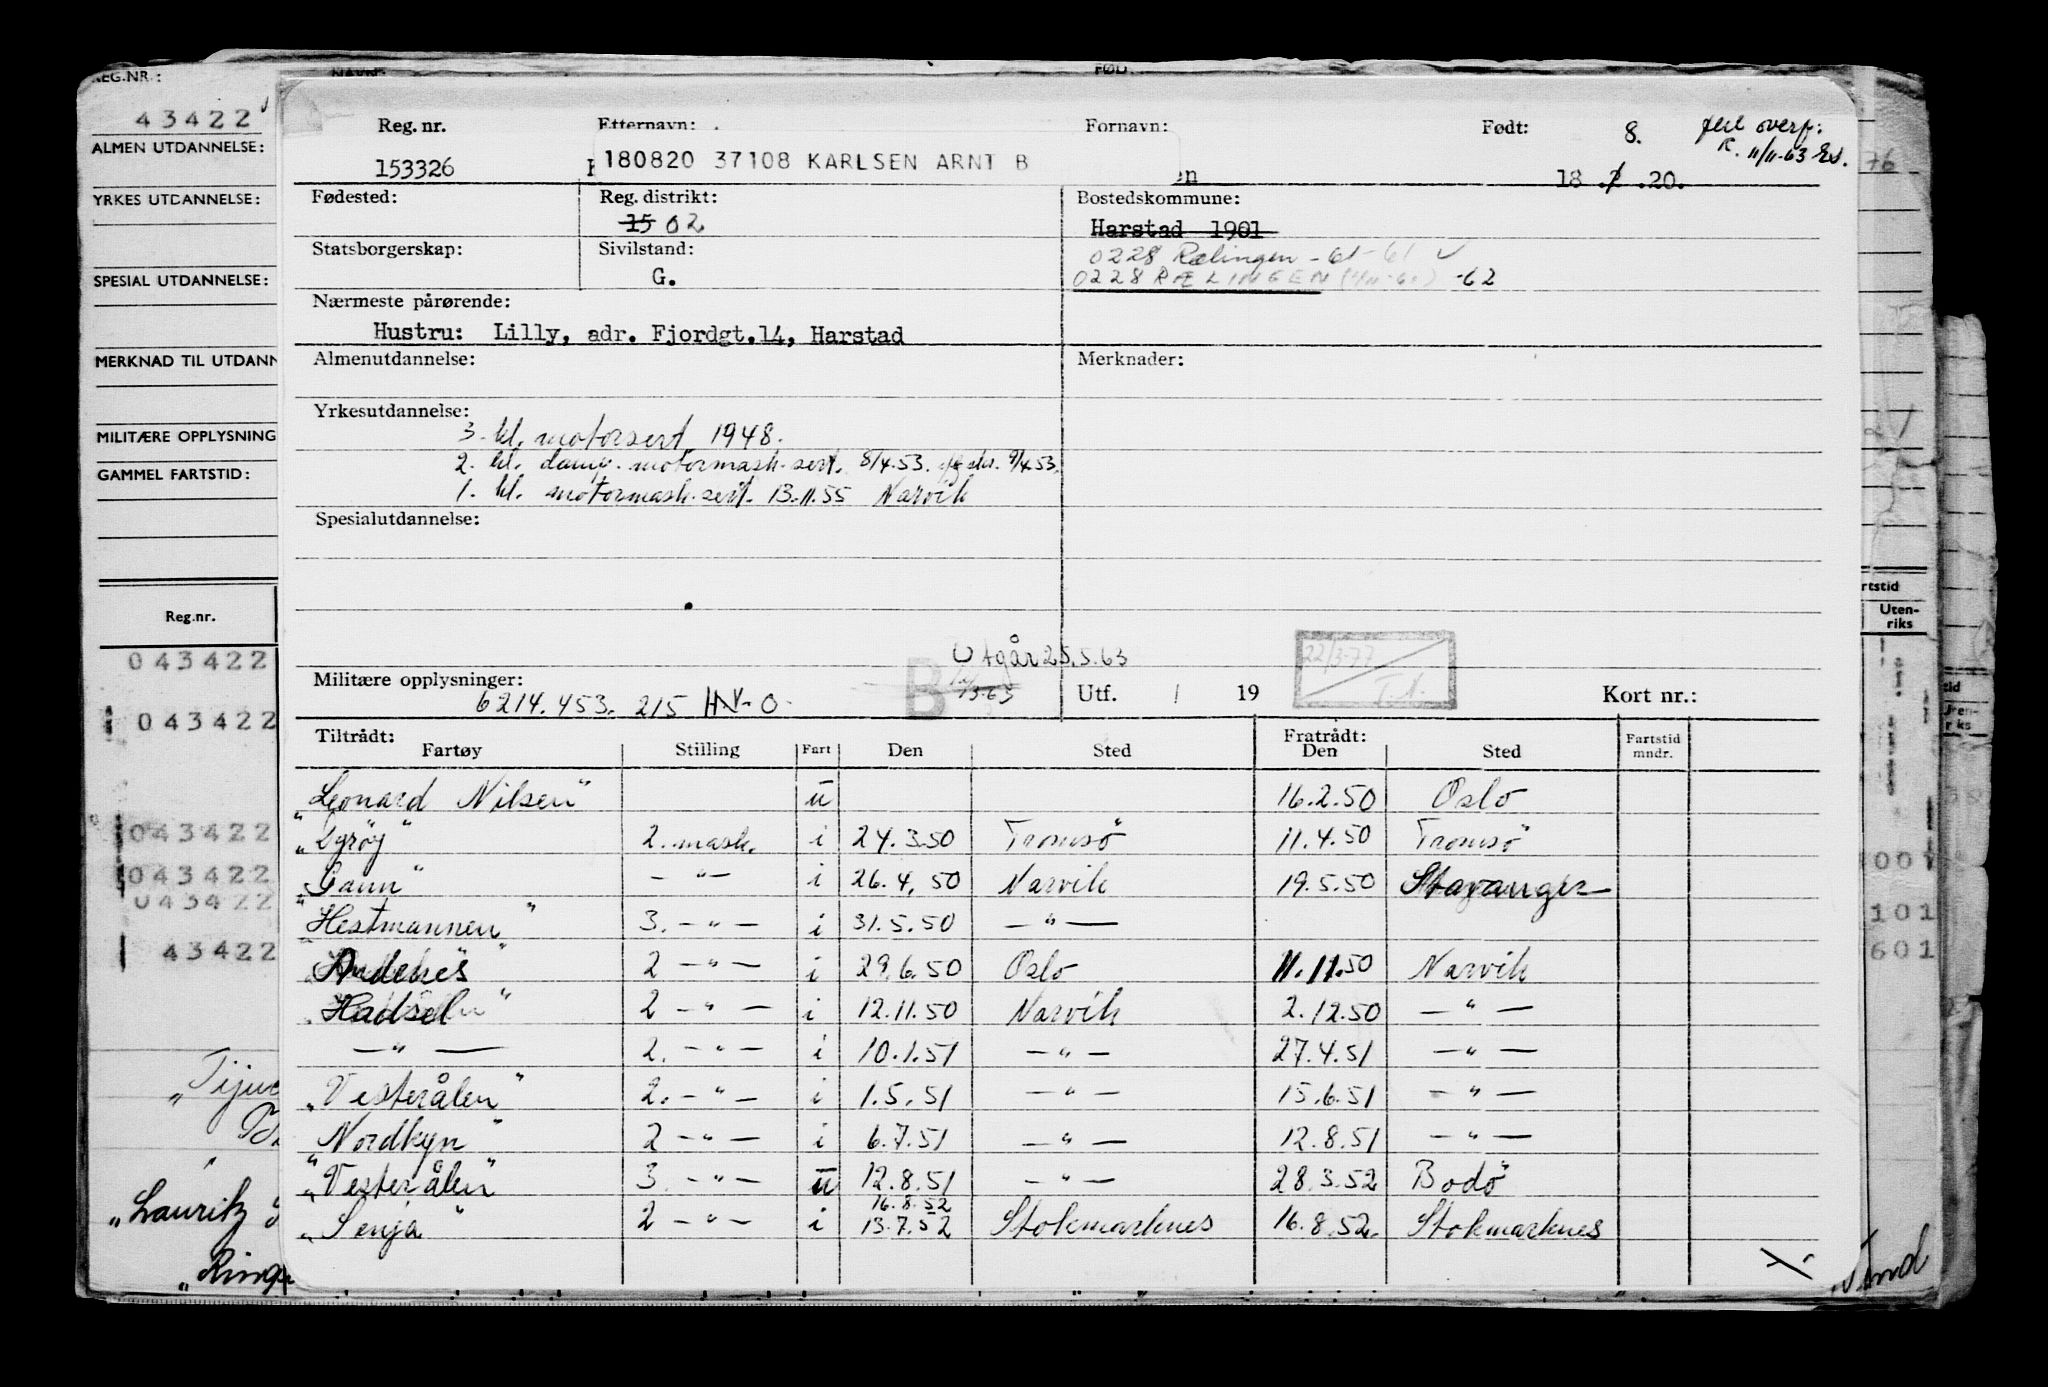 REG.NR.:
43422
ALMEN UTDANNELSE:
YRKES UTDANNELSE:
SPESIAL UTDANNELSE:
MERKNAD TIL UTDANN
MILITÆRE OPPLYSNING
GAMMEL FARTSTID:
Reg.nr.
043422
043422
043422
043422
043422
43422
"Tijuc
"Lauritz
"Ring
Reg. nr. Etternavn: Fornavn: Født: 8. feil overf:
R. 11/11-63
153326 180820 37108 KARLSEN ARNT B en 18. .20.
Fødested: Reg. distrikt: Bostedskommune:
15 02 Harstad 1901
Statsborgerskap: Sivilstand: 0228 Rælingen -61 -61
G. 0228 RÆLINGEN -62
Nærmeste pårørende:
Hustru: Lilly, adr. Fjordgt.14, Harstad
Almenutdannelse: Merknader:
Yrkesutdannelse:
3. kl. motorsert 1948.
2. kl. damp. motormask. sert. 8/4.53. 9/4.53.
1. kl. motormask. sert. 13.11.55 Narvik
Spesialutdannelse:
Utgår 25.5.63
Militære opplysninger: B Utf. / 19 22/3-77 Kort nr.:
6214.453. 215 HV-O.
Tiltrådt: Fratrådt:
Fartøy Stilling Fart Den Sted Den Sted Fartstid mndr.
"Leonard Nilsen" u 16.2.50 Oslo
"Dyrøy" 2. mask. i 24.3.50 Tromsö 11.4.50 Tromsö
"Gann" — " — i 26.4.50 Narvik 19.5.50 Stavanger
"Hestmannen" 3. — " — i 31.5.50 — " —
"Andenes" 2 — " — i 29.6.50 Oslo 11.11.50 Narvik
"Hadsel" 2 — " — i 12.11.50 Narvik 2.12.50 — " —
— " — 2. — " — i 10.1.51 — " — 27.4.51 — " —
"Vesterålen" 2. — " — i 1.5.51 — " — 15.6.51 — " —
"Nordkyn" 2 — " — i 6.7.51 — " — 12.8.51 — " —
"Vesterålen" 3. — " — u 12.8.51 — " — 28.3.52 Bodö
16.8.52
"Senja" 2 — " — i 13.7.52 Stokmarknes 16.8.52. Stokmarknes
76
rtstid
Uten-
riks
001
101
601